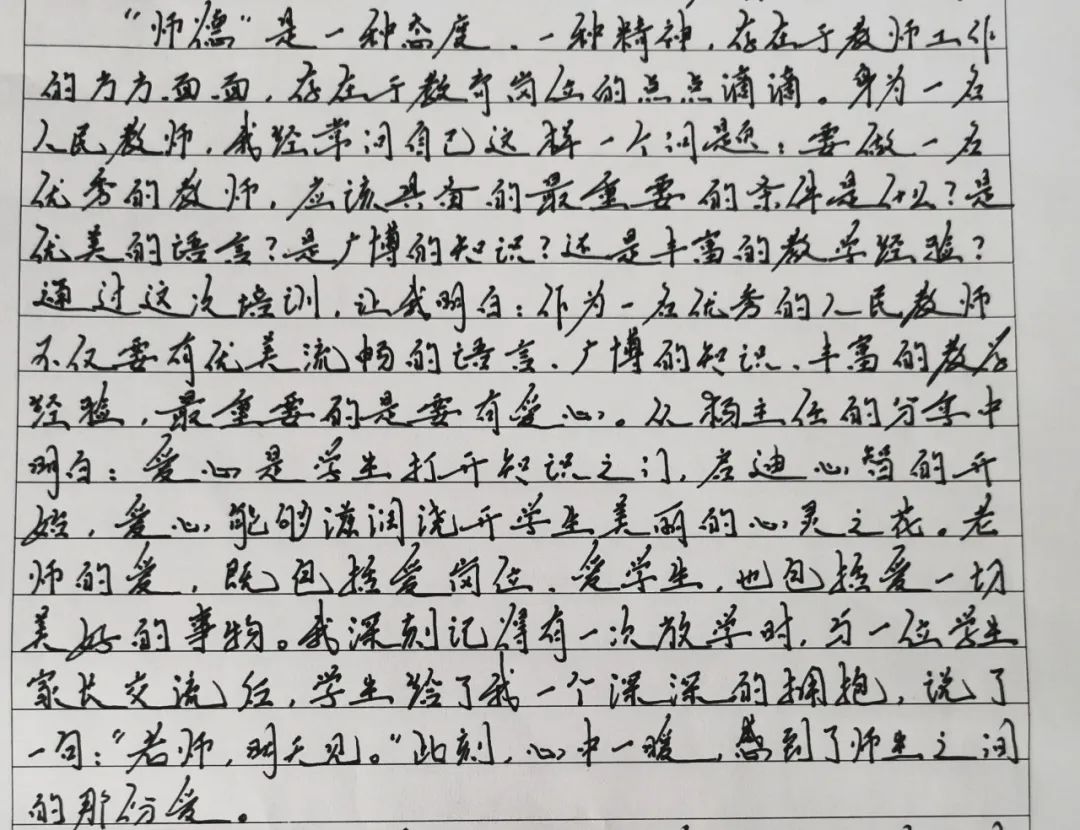 “师德”是一种态度、一种精神，存在于教师工作
的方方面面，存在于教育岗位的点点滴滴。身为一名
人民教师，我经常问自己这样一个问题：要做一名
优秀的教师，应该具备的最重要的条件是什么？是
优美的语言？是广博的知识？还是丰富的教学经验？
通过这次培训，让我明白：作为一名优秀的人民教师
不仅要有优美流畅的语言、广博的知识、丰富的教学
经验，最重要的是要有爱心。从杨主任的分享中
明白：爱心是学生打开知识之门，启迪心智的开
始，爱心能够滋润浇开学生美丽的心灵之花。老
师的爱，既包括爱岗位、爱学生，也包括爱一切
美好的事物。我深刻记得有一次放学时，与一位学生
家长交流后，学生给了我一个深深的拥抱，说了
一句：“老师，明天见。”此刻，心中一暖，感到了师生之间
的那份爱。